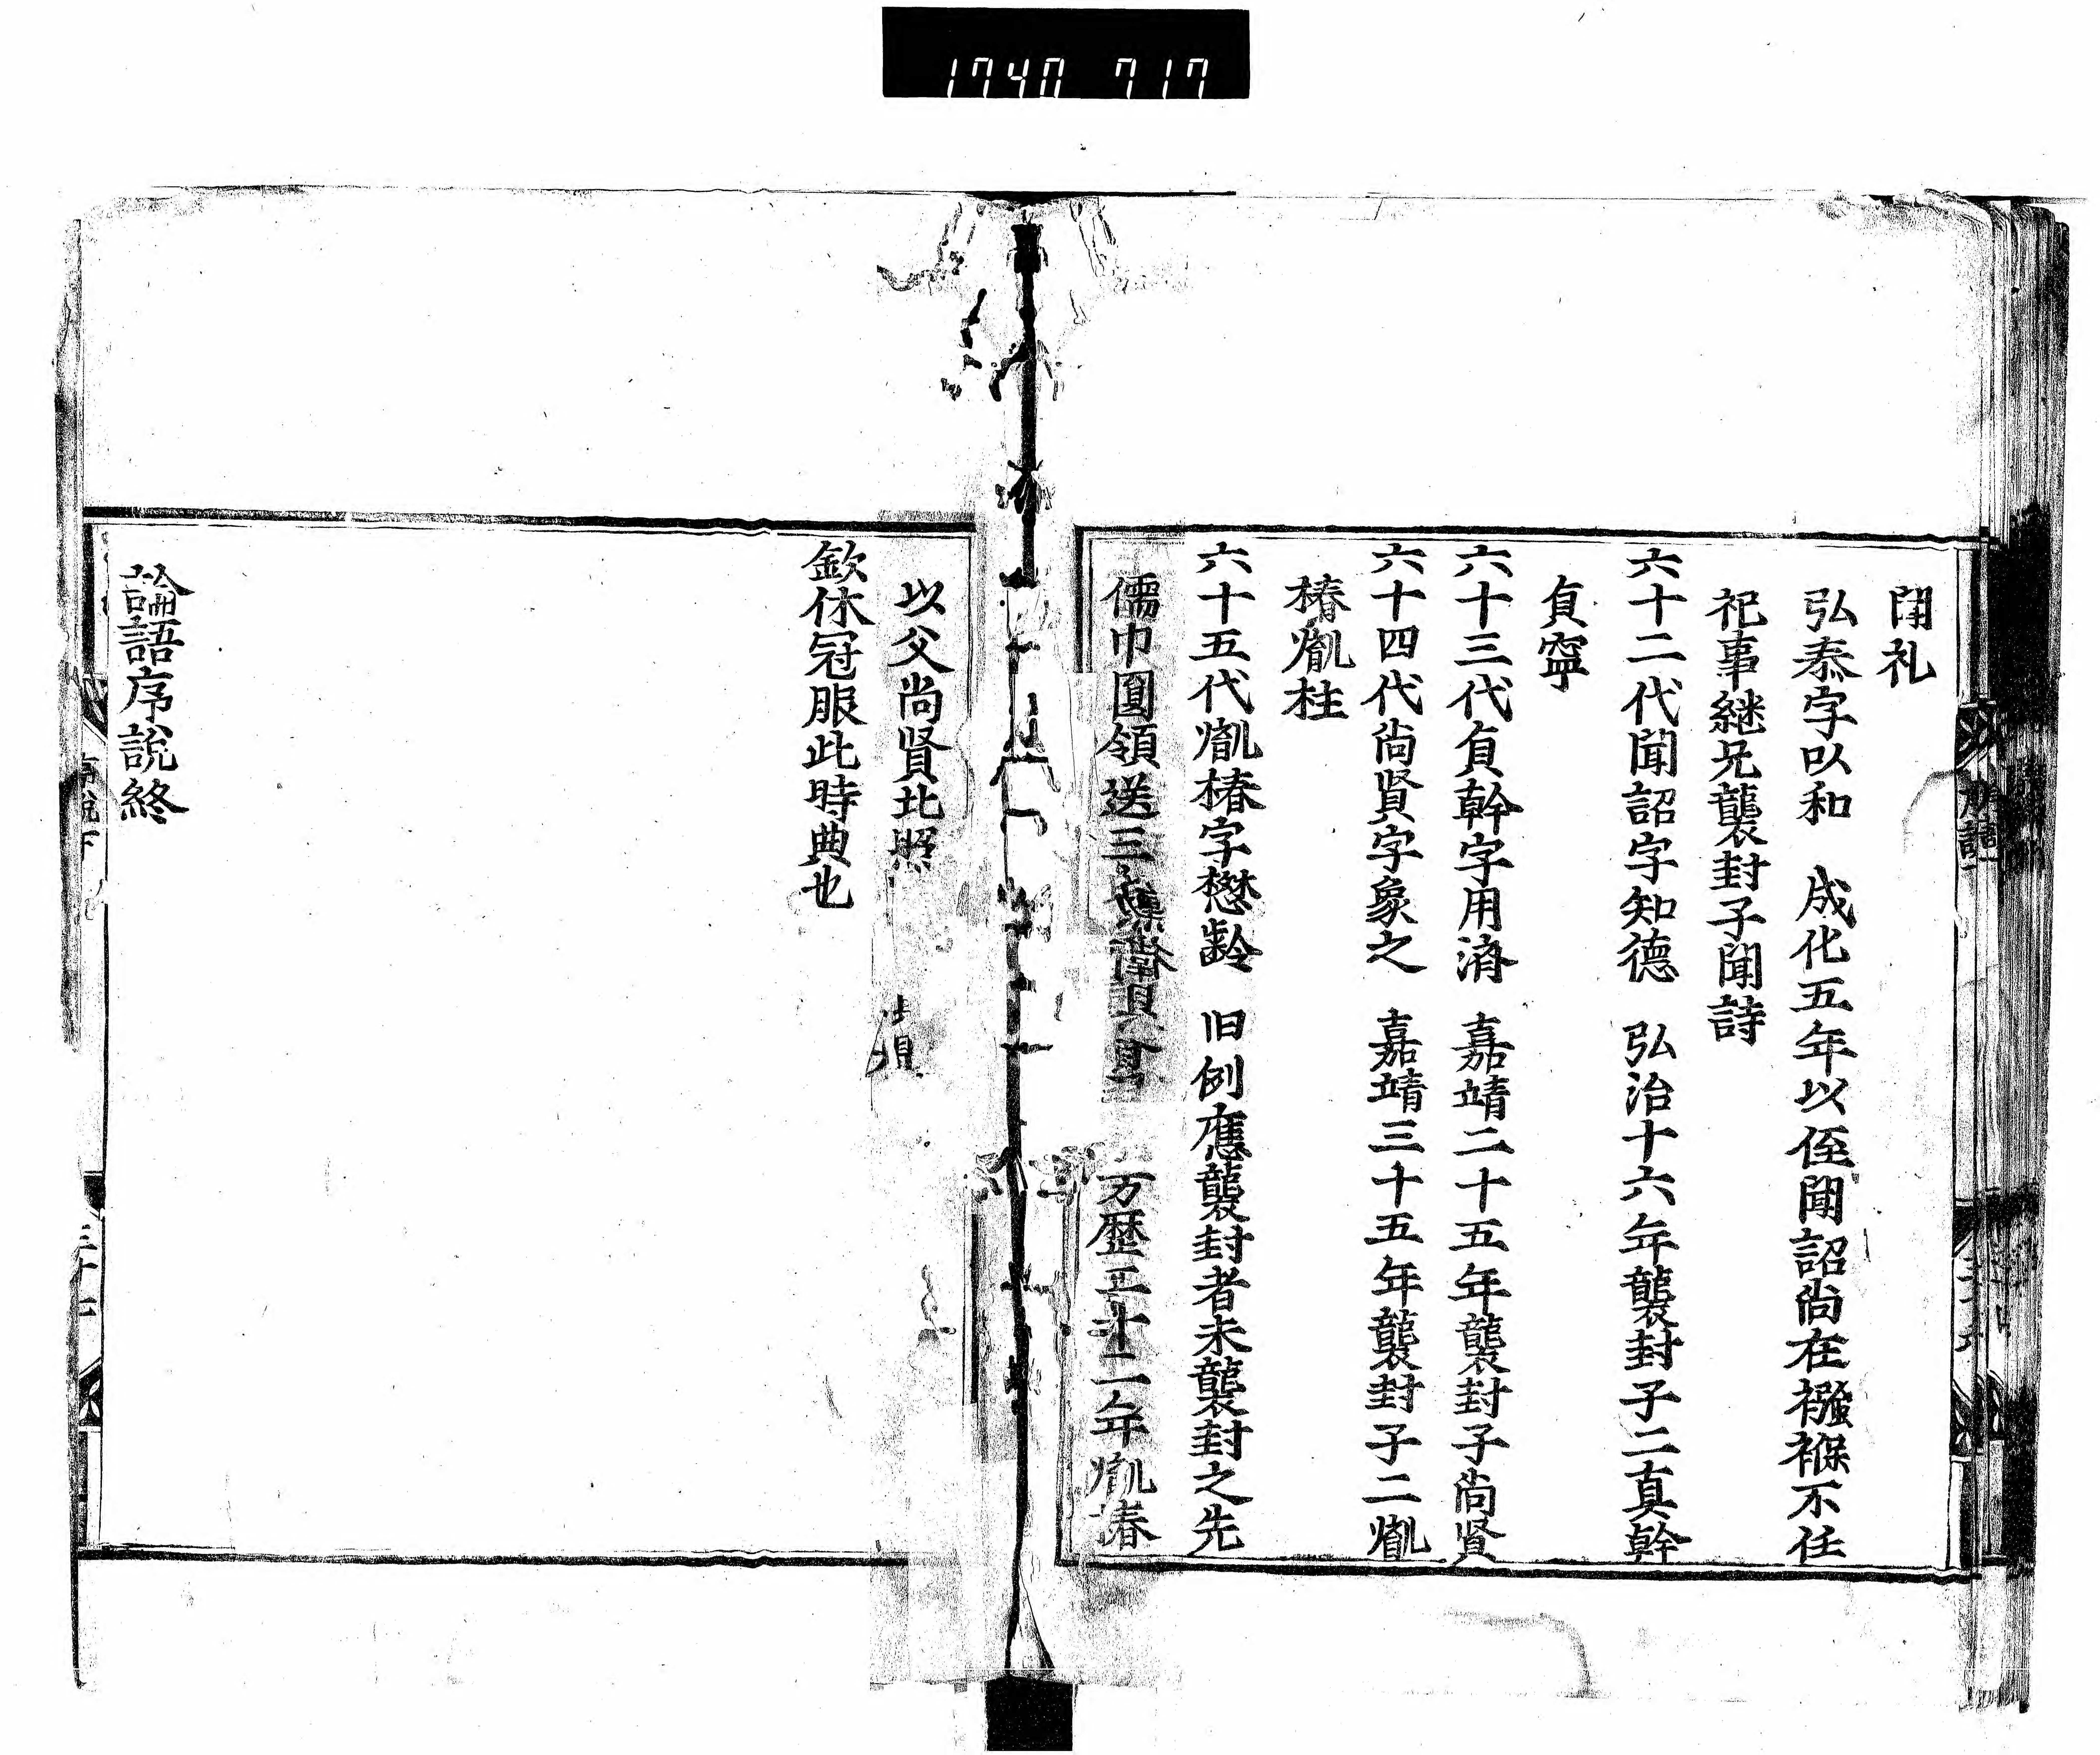 1740 717
聞礼
弘泰字以和 成化五年以侄聞詔尚在襁褓不任
祀事継兄襲封子聞詩
六十二代聞詔字知德 弘治十六年襲封子二真幹
貞寧
六十三代貞幹字用濟 嘉靖二十五年襲封子尚賢
六十四代尚賢字象之 嘉靖三十五年襲封子二㣧
椿㣧柱
六十五代㣧椿字懋齡 旧例應襲封者未襲封之先
儒巾圓領送三 万歷 十二年㣧椿
以父尚賢比照
欽依冠服此時典也
論語序說終